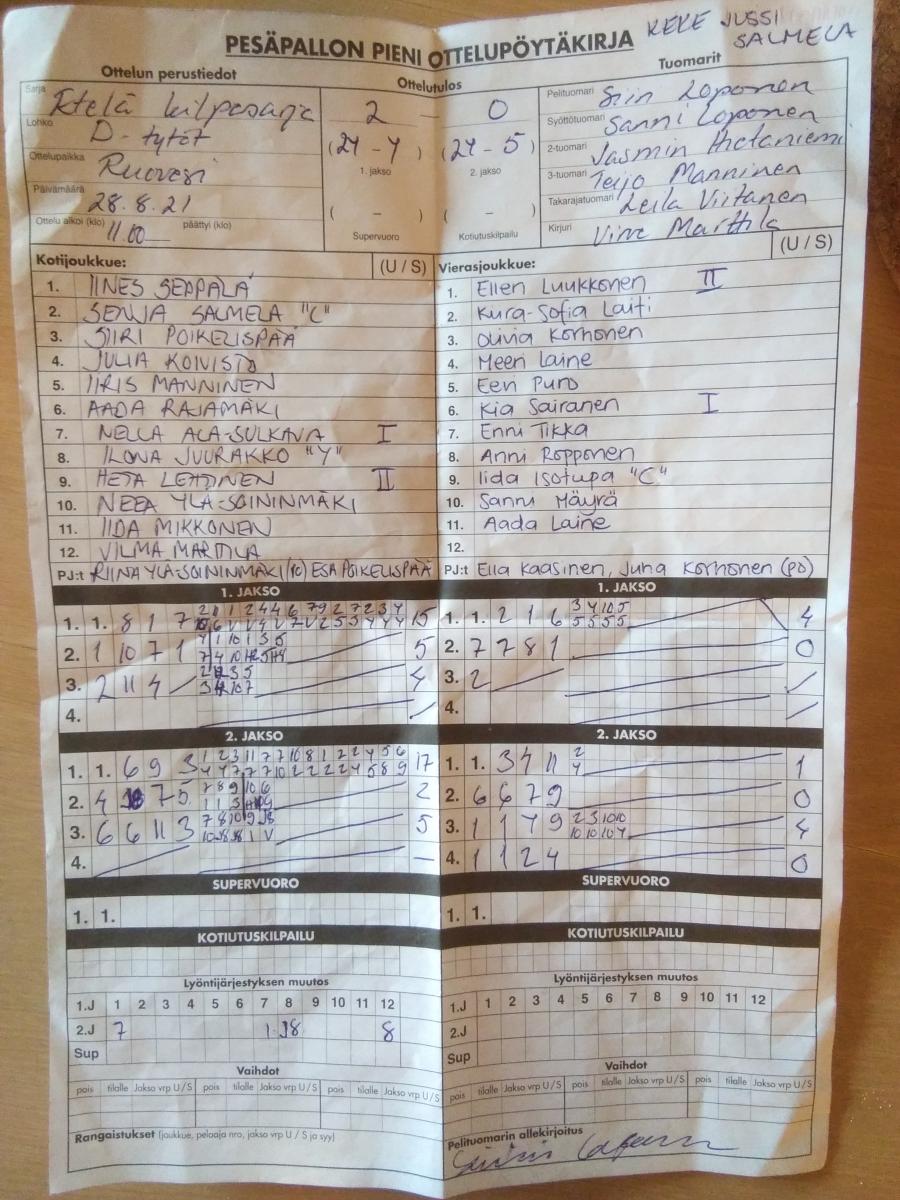 KEKE JUSSI
SALMELA
PESÄPALLON PIENI OTTELUPÖYTÄKIRJA
Ottelun perustiedot
Ottelutulos
Tuomarit
Sarja Etelä kilpasarja
Lohko D-tytöt
Ottelupaikka Ruovesi
Päivämäärä 28.8.21
Ottelu alkoi (klo) 11.00 päättyi (klo)
2 – 0
(24 - 4) (24 - 5)
1. jakso 2. jakso
( - ) ( - )
Supervuoro Kotiutuskilpailu
Pelituomari Siiri Loponen
Syöttötuomari Sanni Loponen
2-tuomari Jasmin
3-tuomari Teijo Manninen
Takarajatuomari Leila Viitanen
Kirjuri Virve Marttila
Kotijoukkue: (U / S)
1. IINES SEPPÄLÄ
2. SENJA SALMELA "C"
3. SIIRI POIKELISPÄÄ
4. JULIA KOIVISTO
5. IIRIS MANNINEN
6. AADA RAJAMÄKI
7. NELLA ALA-SULKAVA I
8. ILONA JUURAKKO "Y"
9. HETA LEHTINEN II
10. NEEA YLÄ-SOININMÄKI
11. IIDA MIKKONEN
12. VILMA MARTTILA
PJ:t RIINA YLÄ-SOININMÄKI ESA POIKELISPÄÄ
Vierasjoukkue: (U / S)
1. Ellen Luukkonen II
2. Kura-Sofia Laiti
3. Olivia Korhonen
4. Meeri Laine
5. Eeri Puro
6. Kia Sairanen I
7. Enni Tikka
8. Anni Ropponen
9. Iida Isotupa "C"
10. Sanni Mäyrä
11. Aada Laine
12.
PJ:t Ella Kaasinen, Juha Korhonen (PJ)
1. JAKSO
1. 1. 8 1 7 15
2. 1 10 7 1 5
3. 2 11 4 4
4.
1. JAKSO
1. 1. 2 1 6 3 4 10 5 4
5 5 5 5
2. 7 7 8 1 0
3. 2
4.
2. JAKSO
1. 1. 6 9 3 1 2 3 11 7 7 10 8 1 2 2 4 5 6 17
4 4 7 7 7 10 2 2 2 2 4 5 8 9
2. 4 7 5 2
3. 6 6 11 3 5
4. –
2. JAKSO
1. 1. 3 4 11 2 1
4
2. 6 6 7 9 0
3. 1 1 7 9 2 3 10 10 4
10 10 10 4
4. 1 1 2 4 0
SUPERVUORO
1. 1.
SUPERVUORO
1. 1.
KOTIUTUSKILPAILU
KOTIUTUSKILPAILU
Lyöntijärjestyksen muutos
1.J 1 2 3 4 5 6 7 8 9 10 11 12
2.J 7 1 8
Sup
Lyöntijärjestyksen muutos
1.J 1 2 3 4 5 6 7 8 9 10 11 12
2.J
Sup
Vaihdot
pois tilalle Jakso vrp U / S pois tilalle Jakso vrp U / S pois tilalle Jakso vrp U / S
Rangaistukset (joukkue, pelaaja nro, jakso vrp U / S ja syy)
Vaihdot
pois tilalle Jakso vrp U / S pois tilalle Jakso vrp U / S pois tilalle Jakso vrp U / S
Pelituomarin allekirjoitus